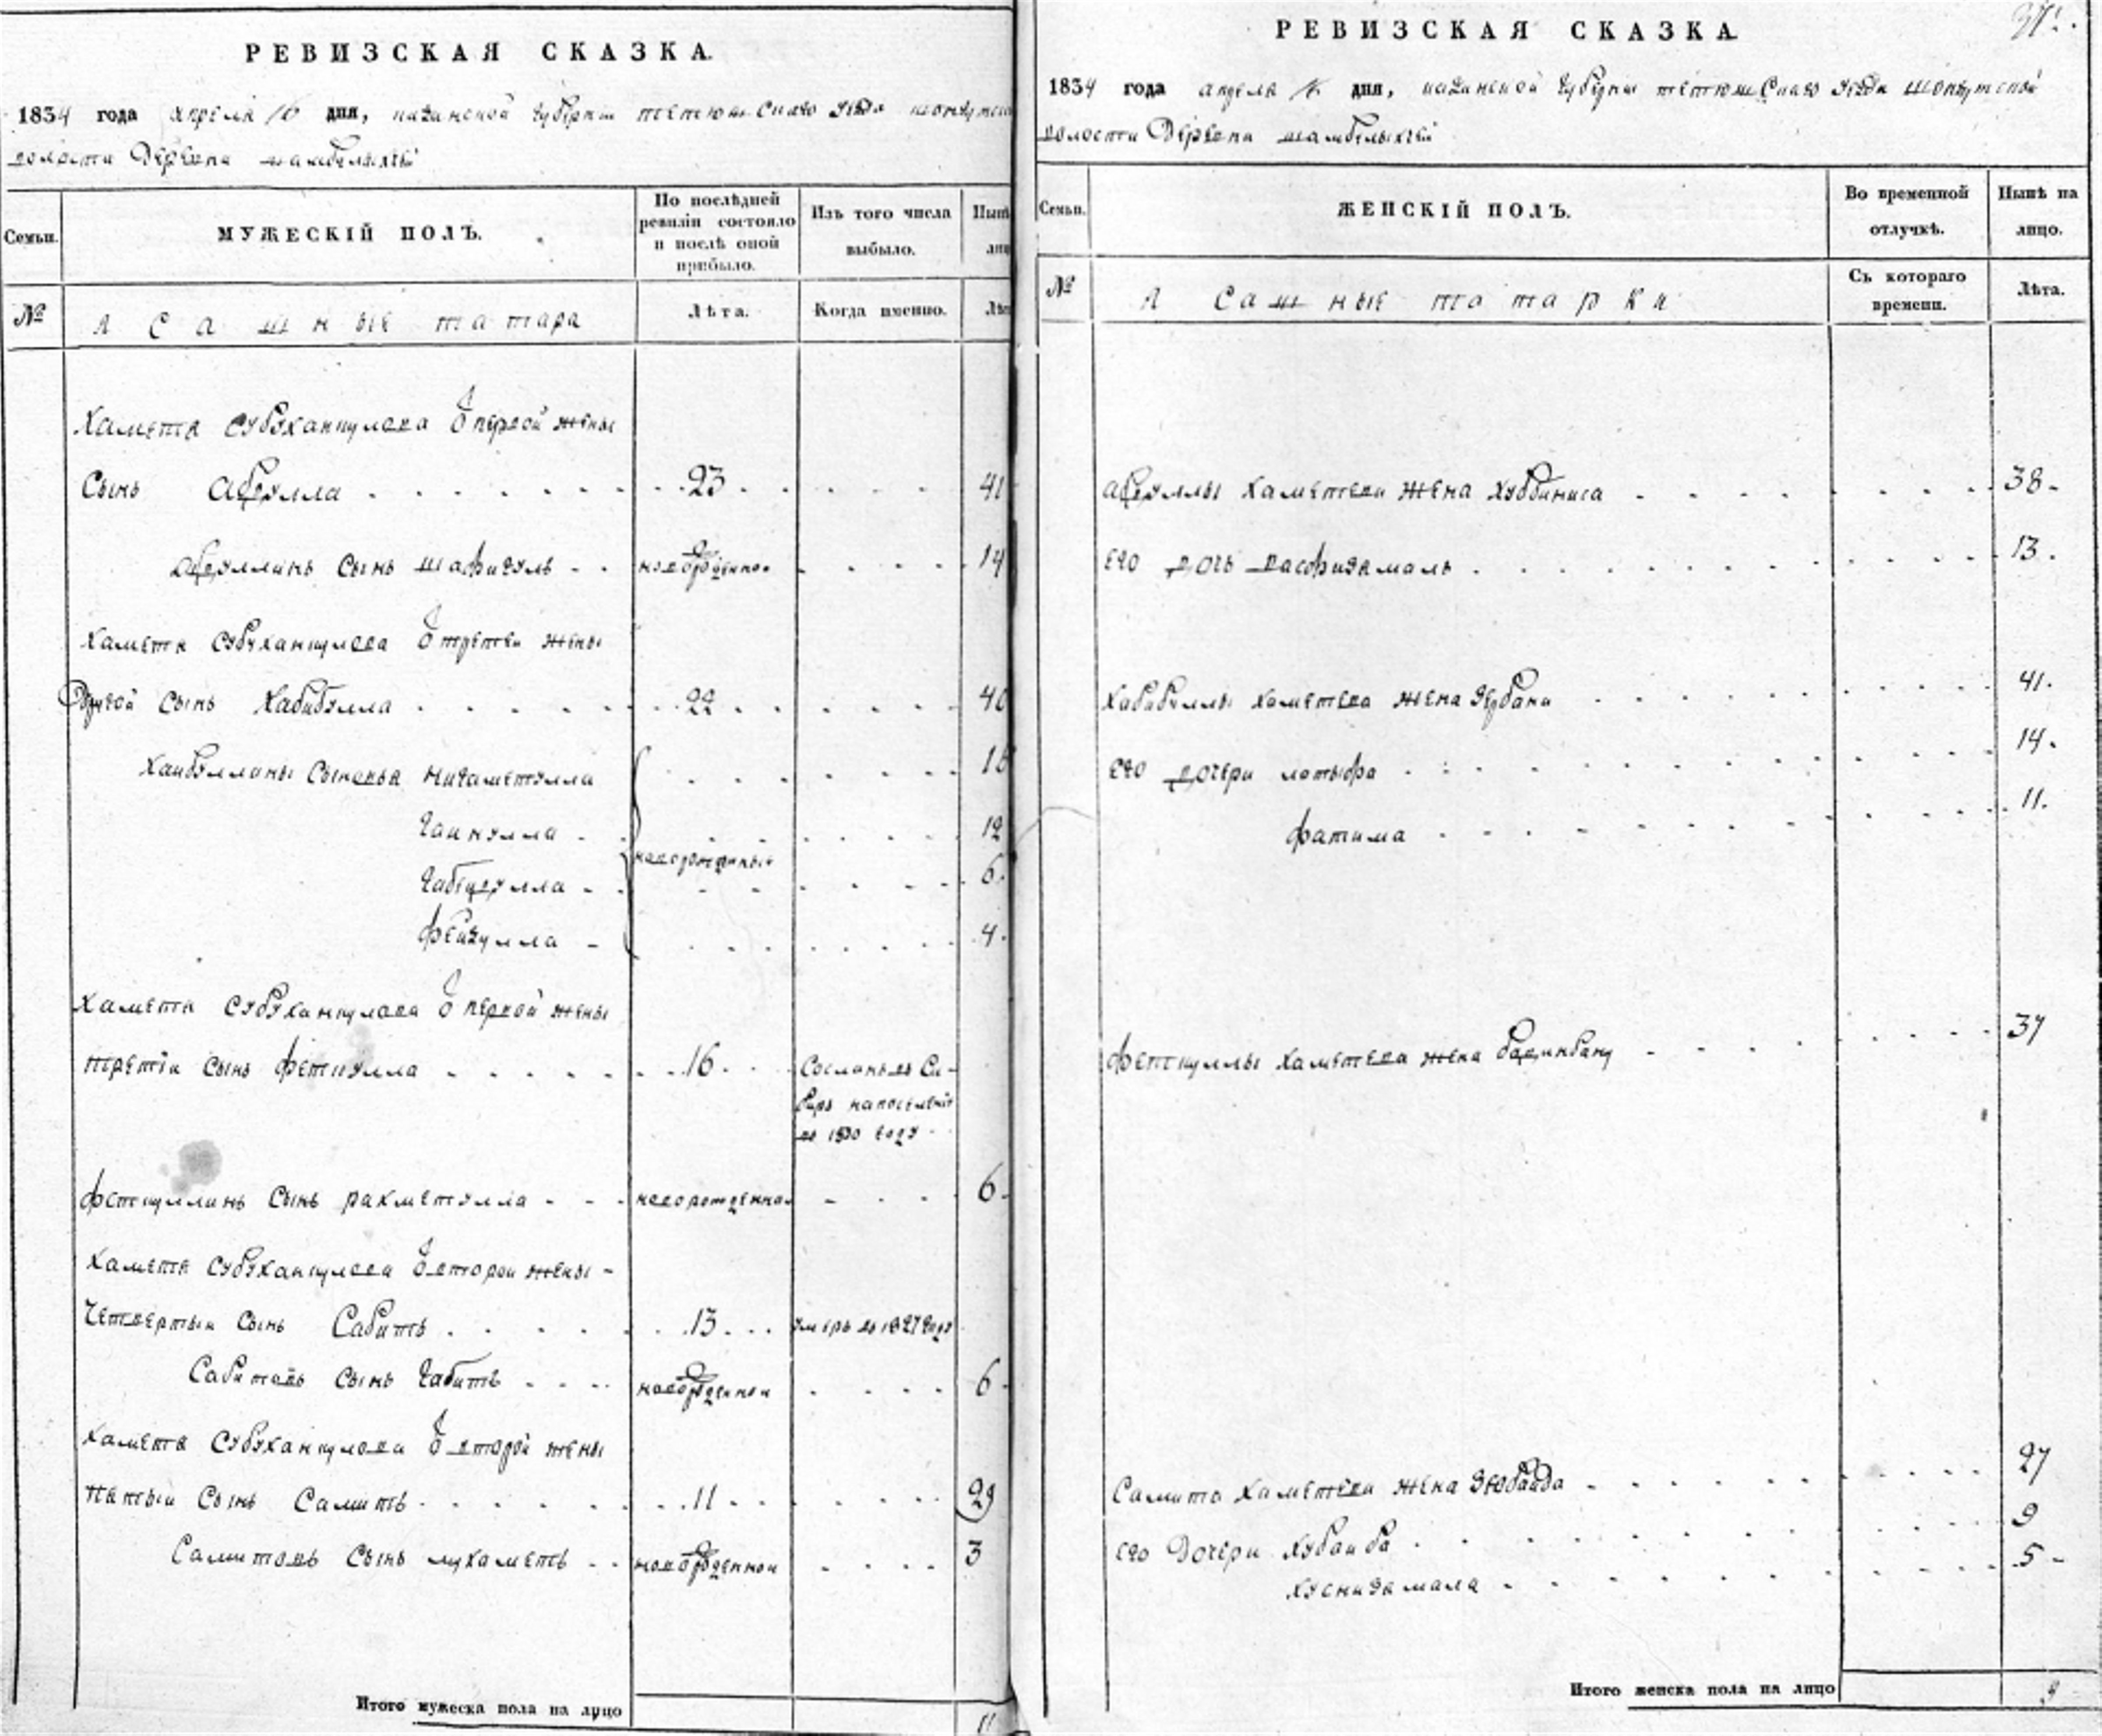 РЕВИЗСКАЯ СКАЗКА.
1834 года апреля 16 дня, казанской губернии тетюшскаго уезда шонгутско
волости Деревни
Семьи.
МУЖЕСКІЙ ПОЛЪ.
По послѣдней ревизіи состояло и послѣ оной прибыло.
Изъ того числа выбыло.
Нынѣ лиц
№
Ясашные татара
Лѣта.
Когда именно.
Лѣт
Хаметя Субханкулова Ѿ первой жены
Сынъ Абдулла 23 41
Абдуллинъ сынъ шафигулъ новорожденной 14
Хаметя Субханкулова Ѿ третей жены
Другой сынъ Хабибулла 22 40
Хабуллины сыновья Нигаметулла 18
Гаинулла 12
новорожденныя
Габидулла 6.
Фейзулла 4.
Хаметя Субханкулова Ѿ первой жены
третіи сынъ Фетхулла 16 Сосланъ въ Си-
бирь на поселеніе
въ 1830 году
Фетхуллинъ сынъ рахметулла новорожденной 6
Хаметя Субханкулова Ѿ второй жены
Четвертыи сынъ Сабитъ 13 умеръ въ 1827 году
Сабитовъ сынъ Габитъ новорожденной 6
Хаметя Субханкулова Ѿ второй жены
Пятыи сынъ Самитъ 11 29
Самитовъ сынъ мухаметъ новорожденной 3
Итого мужеска пола на лицо 11
РЕВИЗСКАЯ СКАЗКА
1834 года апреля дня, казанской губернии тетюшскаго уезда шонгутской
волости Деревни
Семьи.
ЖЕНСКІЙ ПОЛЪ.
Во временной отлучкѣ.
Нынѣ на лицо.
№
Ясашные татарки
Съ котораго времени.
Лѣта.
Абдуллы Хаметева жена Хуббиниса 38
его дочь Васфизямаль 13.
Хабибуллы Хаметева жена Зербану 41.
его дочери латыфа 14.
фатима 11.
Фетхуллы Хаметева жена Бадинбану 37
Самита Хаметева жена Зюбайда 27
его Дочери Хубайба 9
Хуснизямала 5
Итого женска пола на лицо 9